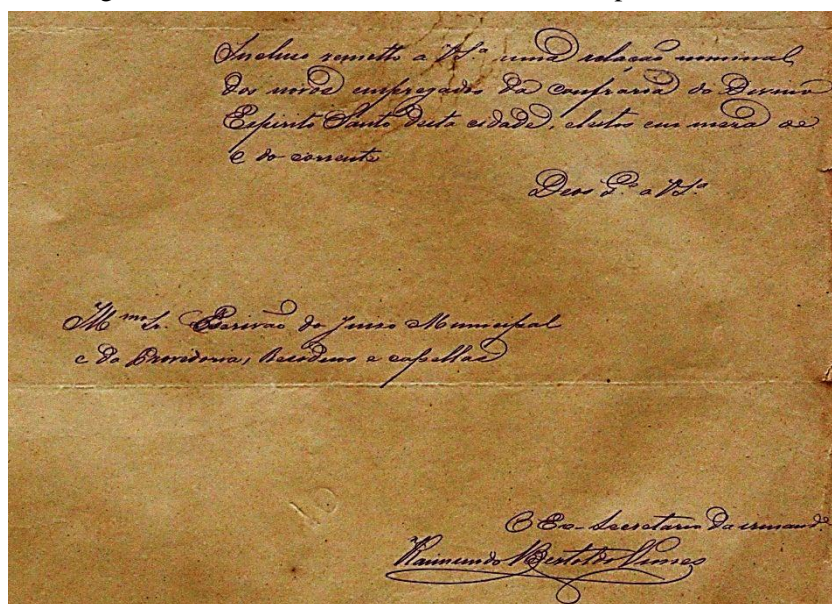 Incluso remetto a V.Sª uma relação nominal
dos novos empregados da confraria do Divino
Espirito Santo desta cidade, eleitos em meza de
do corrente
Deos G.e a V.Sª
Illmo Sr. Escrivão do Juiso Municipal
e da Provedoria, Residuos e capellas
O Ex-Secretario da irmand.e
Raimundo Bertoldo Nunes